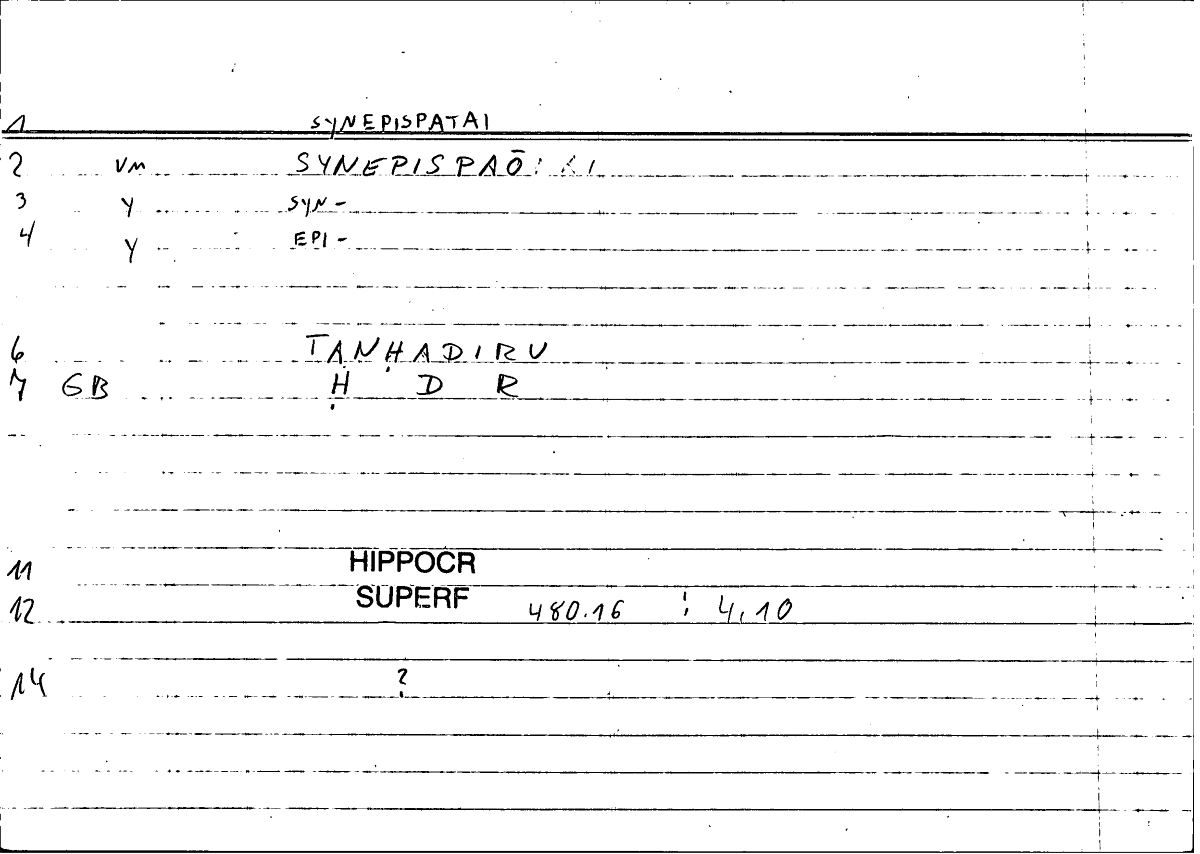 1 SYNEPISPATAI
2 VM SYNEPISPAŌ
3 Y SYN-
4 Y EPI-
6 TANḤADIRU
7 GB Ḥ D R
11 HIPPOCR
12 SUPERF 480.16 : 4,10
14 ?